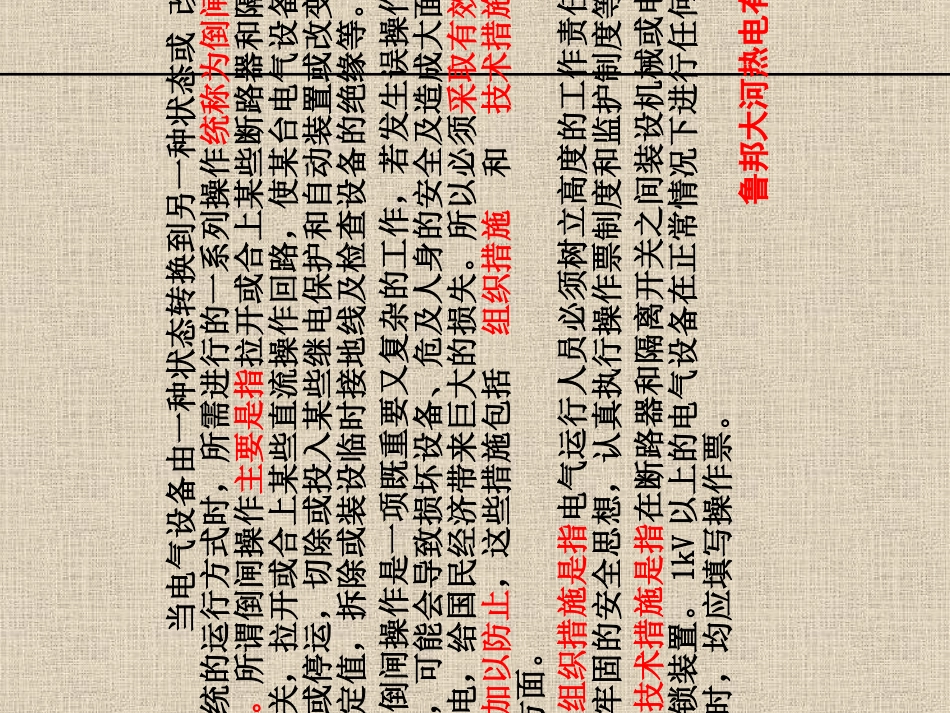 当电气设备由一种状态转换到另一种状态或 改
统的运行方式时，所需进行的一系列操作统称为倒闸
。所谓倒闸操作主要是指拉开或合上某些断路器和隔
关，拉开或合上某些直流操作回路，使某台电气设备
或停运，切除或投入某些继电保护和自动装置或改变
定值，拆除或装设临时接地线及检查设备的绝缘等。
倒闸操作是一项既重要又复杂的工作，若发生误操作
，可能会导致损坏设备、危及人身的安全及造成大面
电，给国民经济带来巨大的损失。所以必须采取有效
加以防止，这些措施包括 组织措施 和 技术措施
方面。
组织措施是指电气运行人员必须树立高度的工作责任
牢固的安全思想，认真执行操作票制度和监护制度等
技术措施是指在断路器和隔离开关之间装设机械或电
锁装置。1kV 以上的电气设备在正常情况下进行任何
时，均应填写操作票。
鲁邦大河热电有